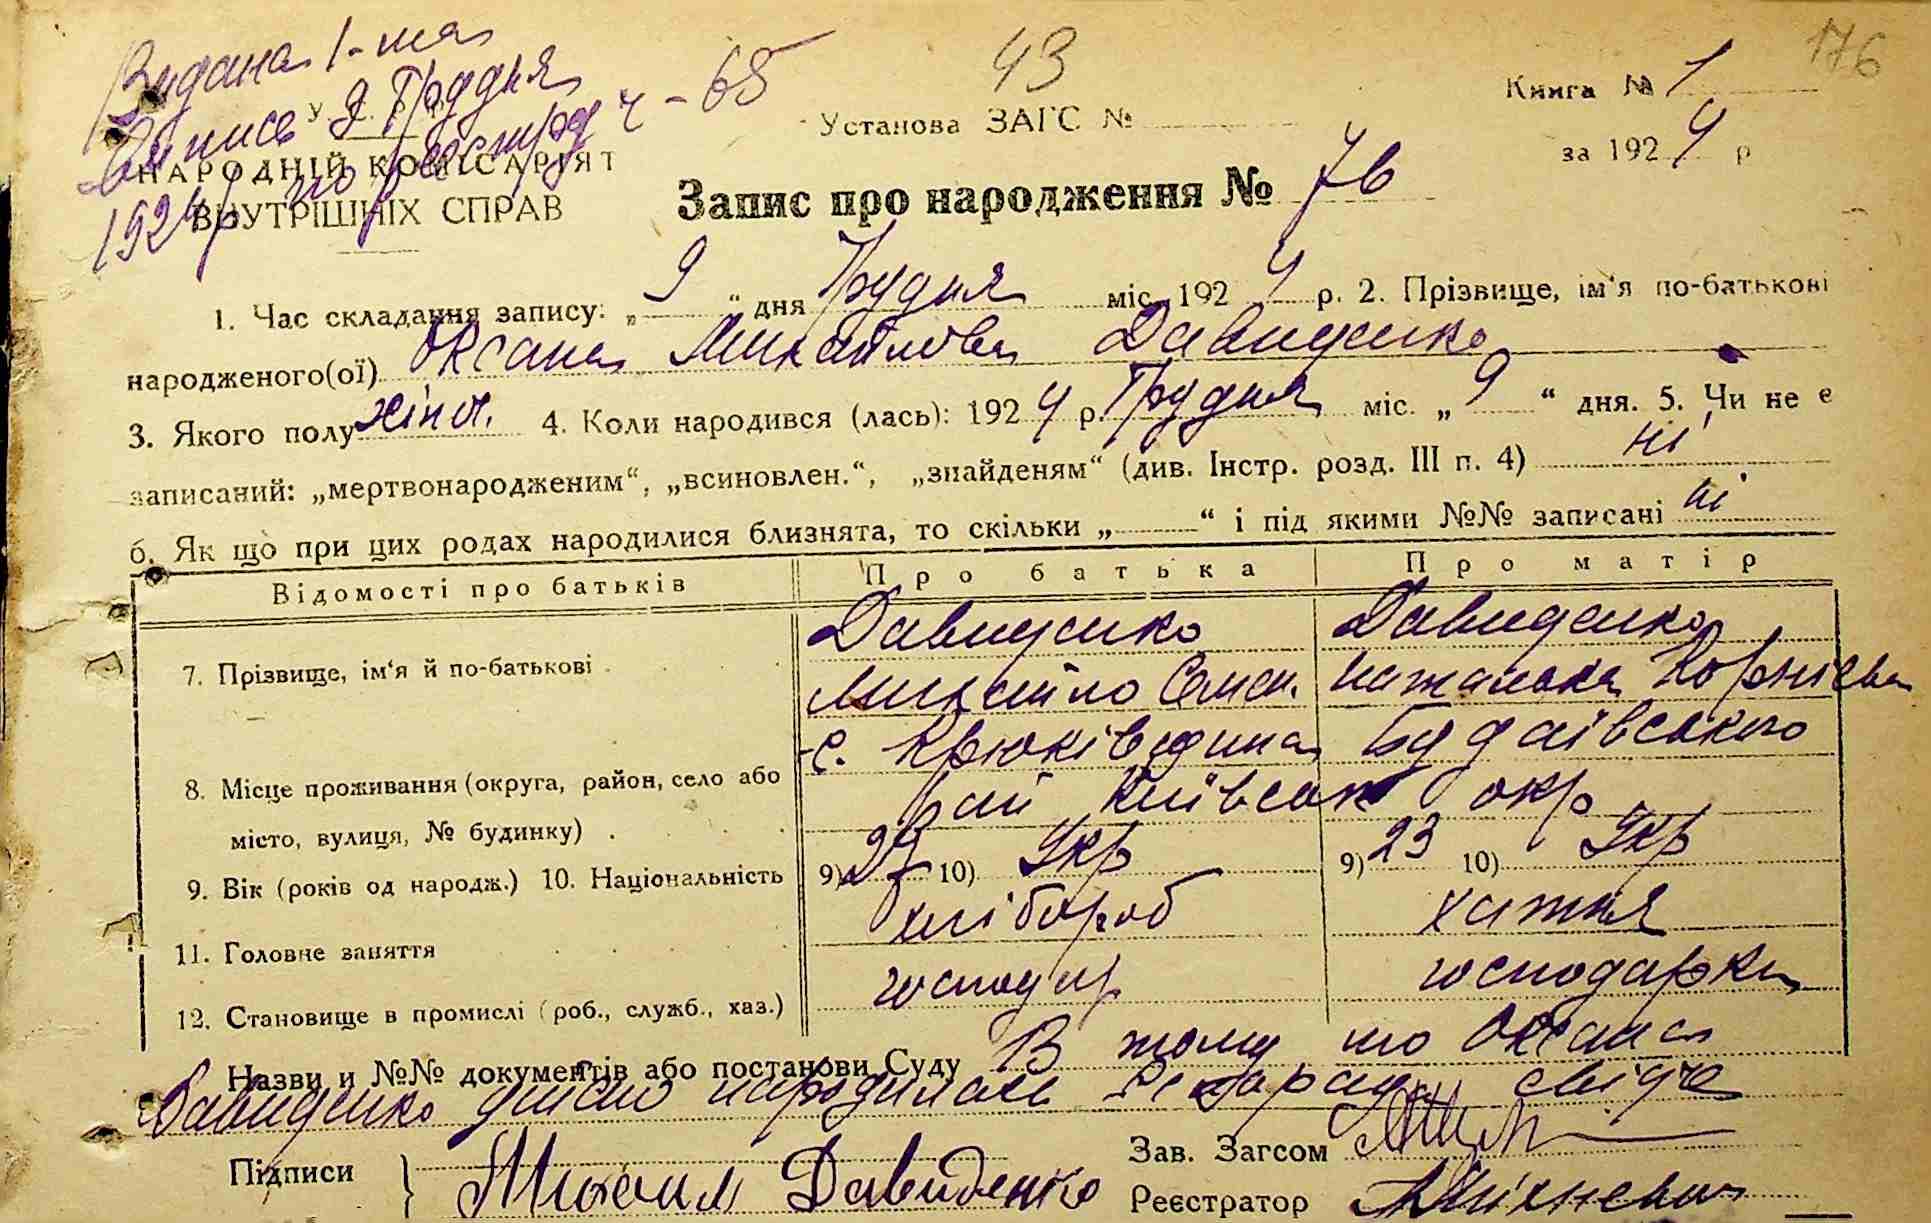 176
43
Видана 1-ша
Випись 9 Грудня
1924 р по реєстру ч - 65
Книга № 1
Установа ЗАГС №
за 1924 р
НАРОДНІЙ КОМІСАРІЯТ
ВНУТРІШНІХ СПРАВ
Запис про народження № 76
1. Час складання запису: „ 9 “ дня Грудня міс. 1924 р. 2. Прізвище, ім‘я по-батькові
народженого(ої) Оксана Михайлова Давиденко
3. Якого полу жіноч. 4. Коли народився (лась): 1924 р. Грудня міс. „ 9 “ дня. 5. Чи не є
записаний: „мертвонародженим“, „всиновлен.“, „знайденям“ (див. Інстр. розд. III п. 4) ні
6. Як що при цих родах народилися близнята, то скільки „ “ і під якими №№ записані ні
Відомості про батьків Про батька Про матір
7. Прізвище, ім‘я й по-батькові Давиденко Давиденко
Михайло Семен. Наталька Корнієва
8. Місце проживання (округа, район, село або с. Крюківщина Будаївського
місто, вулиця, № будинку) рай Київськ окр.
9. Вік (років од народж.) 10. Національність 9) 29 10) Укр 9) 23 10) Укр
11. Головне заняття хлібороб хатня
12. Становище в промислі (роб., служб., хаз.) господар господарка
Назви и №№ документів або постанови Суду В тому що Оксана
Давиденко дійсно народилась
Підписи Давиденко
Зав. Загсом
Реєстратор